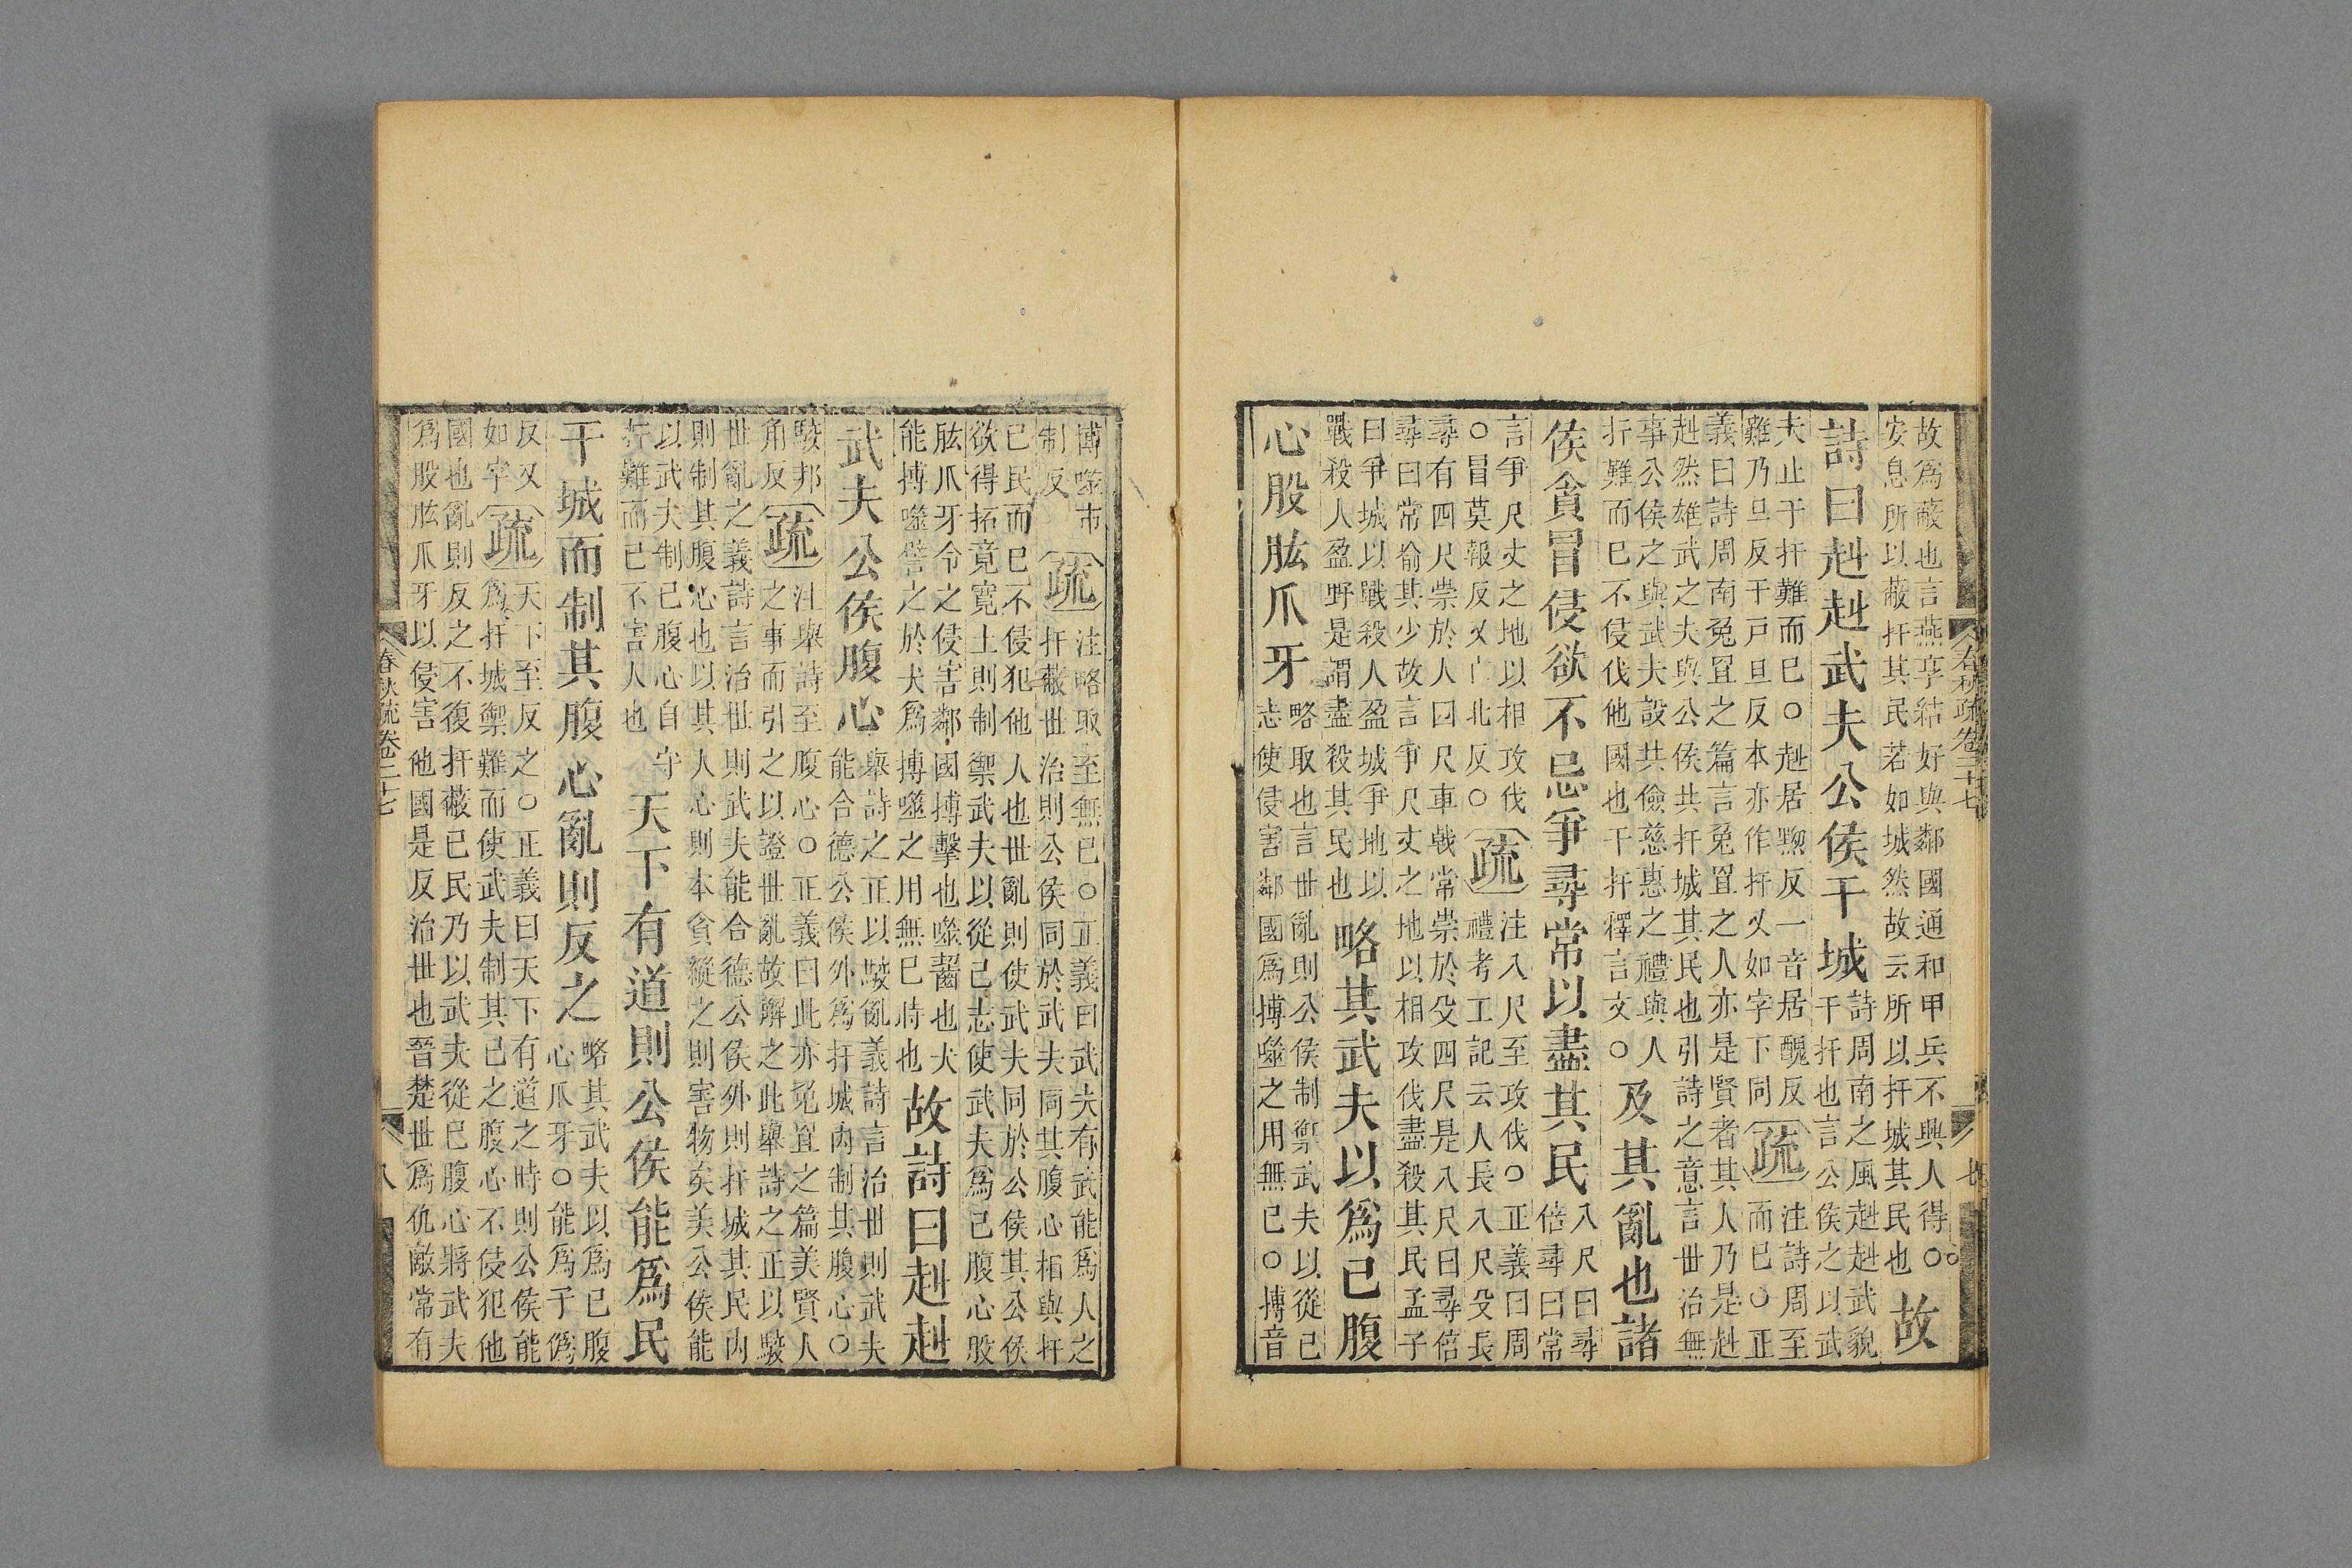 故爲蔽也言燕享結好與鄰國通和甲兵不興人得○
安息所以蔽扞其民若如城然故云所以扞城其民也
故
詩曰赳赳武夫公侯干城
詩周南之風赳赳武貌
干扞也言公侯之以武
夫止于扞難而已○赳居黝反一音居醜反
難乃旦反干戸旦反本亦作扞又如字下同
疏
注詩周至
而已○正
義曰詩周南兔罝之篇言兔罝之人亦是賢者其人乃是赳
赳然雄武之夫與公侯共扞城其民也引詩之意言世治無
事公侯之與武夫設共儉慈惠之禮與人
扞難而已不侵伐他國也干扞釋言文○
及其亂也諸
侯貪冒侵欲不忌爭尋常以盡其民
八尺曰尋
倍尋曰常
言爭尺丈之地以相攻伐
○冒莫報反又亡北反○
疏
注八尺至攻伐○正義曰周
禮考工記云人長八尺殳長
尋有四尺崇於人四尺車戟常崇於殳四尺是八尺曰尋倍
尋曰常俞其少故言爭尺丈之地以相攻伐盡殺其民孟子
曰爭城以戰殺人盈城爭地以
戰殺人盈野是謂盡殺其民也
略其武夫以爲己腹
心股肱爪牙
略取也言世亂則公侯制禦武夫以從己
志使侵害鄰國爲搏噬之用無已○搏音
春秋疏卷二十七
七
博噬市
制反
疏
注略取至無已○正義曰武夫有武能爲人之
扞蔽世治則公侯同於武夫同其腹心柘與扞
已民而已不侵犯他人也世亂則使武夫同於公侯其公侯
欲得拓竟寬土則制禦武夫以從己志使武夫爲己腹心股
肱爪牙令之侵害鄰國搏擊也噬齧也犬
能搏噬譬之於犬爲搏噬之用無已時也
故詩曰赳赳
武夫公侯腹心
舉詩之正以駁亂義詩言治世則武夫
能合德公侯外爲扞城內制其腹心○
駁邦
角反
疏
注舉詩至腹心○正義曰此亦兔罝之篇美賢人
之事而引之以證世亂故辨之此舉詩之正以駁
世亂之義詩言治世則武夫能合德公侯外則扞城其民內
則制其腹心也以其人心則本貪縱之則害物矣美公侯能
以武夫制己腹心自守
扞難而已不害人也
天下有道則公侯能爲民
干城而制其腹心亂則反之
略其武夫以爲己腹
心爪牙○能爲于僞
反又
如字
疏
天下至反之○正義曰天下有道之時則公侯能
爲扞城禦難而使武夫制其己之腹心不侵犯他
國也亂則反之不復扞蔽已民乃以武夫從己腹心將武夫
爲股肱爪牙以侵害他國是反治世也晉楚世爲仇敵常有
春秋疏卷二十七
八